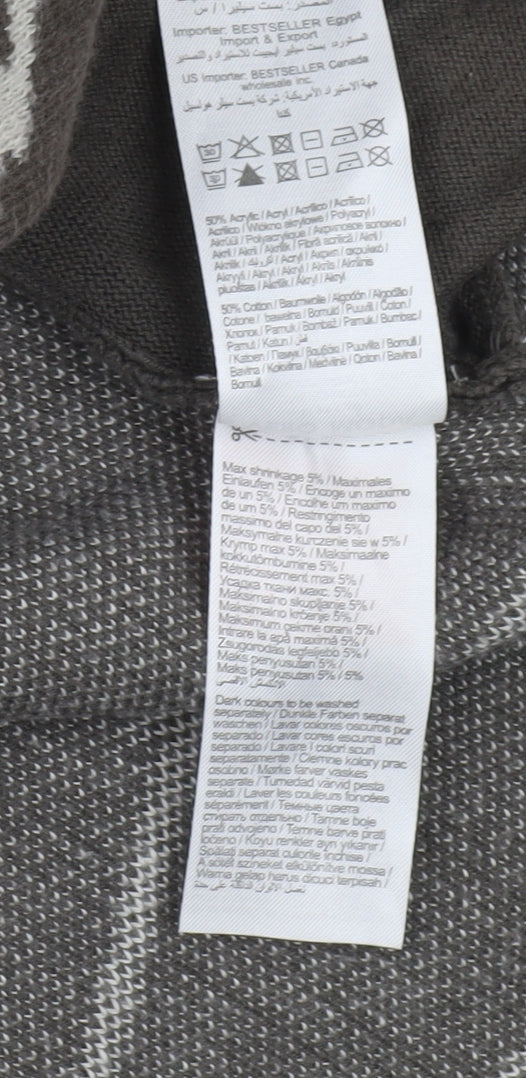 المصدر: بست سيلير ا / س
Importer: BESTSELLER Egypt
Import & Export
المستورد: بست سيلير ايجيبت للاستيراد والتصدير
US Importer: BESTSELLER Canada
wholesale Inc.
جهة الاستيراد الأمريكية: شركة بست سيلر هولسيل
كندا
30
30
50% Acrylic / Acryl / Acrílico / Acrílico /
Acrilico / Włókno akrylowe / Polyacryl /
Akrüül / Polyacrylique / Акриловое волокно /
Akril / Akril / Akrilik / Fibră acrilică / Akril /
Akrilik / اكريليك / Acryl / Акрил /
Akryyli / Akryl / Akryl / Akrils / Akrilinis
pluoštas / Akrylik / Akryl / Akryl
50% Cotton / Baumwolle / Algodón / Algodão /
Cotone / bawełna / Bomuld / Puuvill / Coton /
Хлопок / Pamuk / Bombaž / Pamuk / Bumbac /
Pamut / Katun / قطن
/ Katoen / Памук / Βαμβάκι / Puuvilla / Bomull /
Bavlna / Kokvilna / Medvilnė / Qoton / Bavlna /
Bomull
Max shrinkage 5% / Maximales
Einlaufen 5% / Encoge un maximo
de un 5% / Encolhe um maximo
de um 5% / Restringimento
massimo del capo del 5% /
Maksymalne kurczenie sie w 5% /
Krymp max 5% / Maksimaalne
kokkutõmbumine 5% /
Rétrécissement max 5% /
Усадка ткани макс. 5% /
Maksimalno skupljanje 5% /
Maksimalno krčenje 5% /
Maximum çekme oranı 5% /
Intrare la apă maximă 5% /
Zsugorodás legfeljebb 5% /
Maks penyusutan 5% /
Maks penyusutan 5% / 5%
الانكماش الأقصى
Dark colours to be washed
separately / Dunkle Farben separat
waschen / Lavar colores oscuros por
separado / Lavar cores escuros por
separado / Lavare i colori scuri
separatamente / Ciemne kolory prac
osobno / Mørke farver vaskes
separate / Tumedad värvid pesta
eraldi / Laver les couleurs foncées
séparément / Темные цвета
стирать отдельно / Tamne boje
prati odvojeno / Temne barve prati
ločeno / Koyu renkler ayrı yıkanır /
Spălați separat culorile închise /
A sötét színeket elkülönítve mossa /
Warna gelap harus dicuci terpisah /
تغسل الألوان الداكنة على حدة